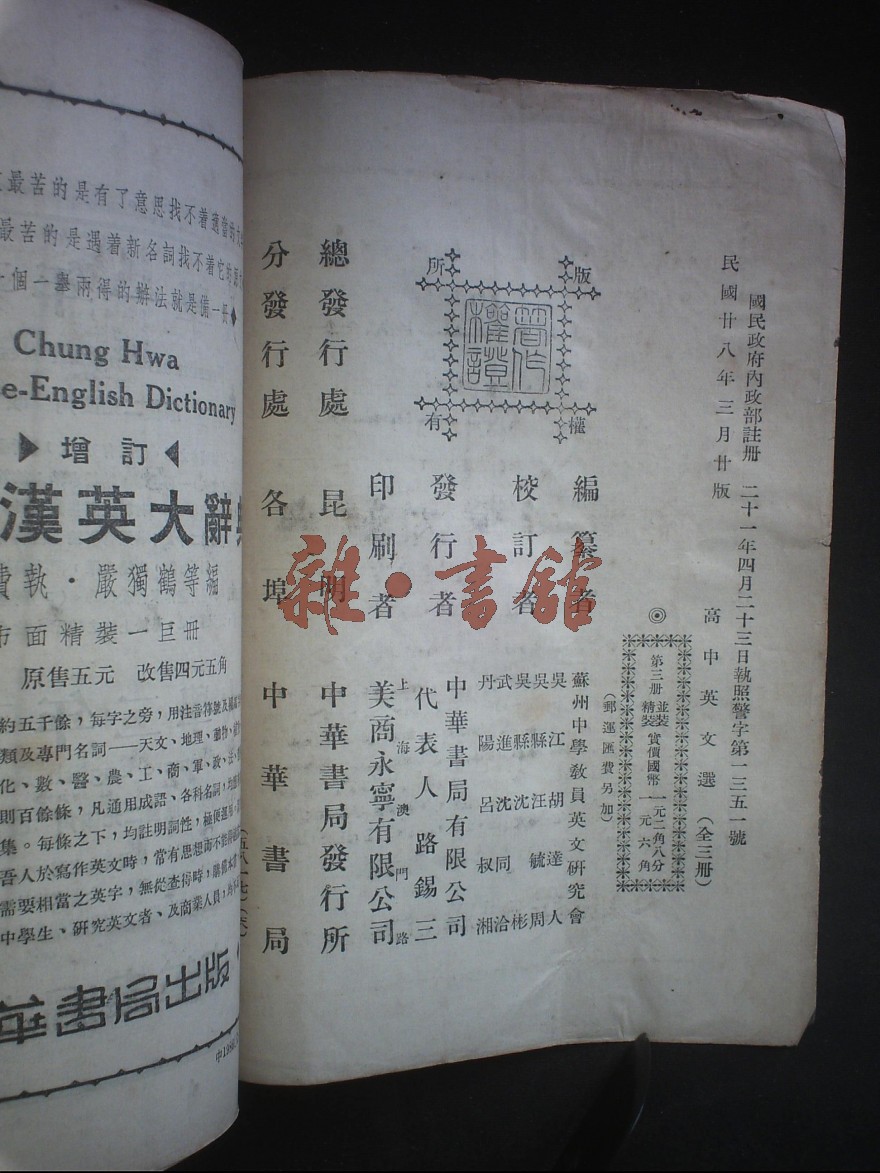 國民政府內政部註冊 二十一年四月二十三日執照警字第一三五一號
民國廿八年三月廿版
高中英文選 (全三冊)
◎
第三冊 並裝 實價國幣 一元二角八分
精裝 一元六角
(郵運匯費另加)
版權所有
著作權證
編纂者 蘇州中學教員英文研究會
校訂者
吳江 胡達人
吳縣 汪毓周
吳縣 沈彬
武進 沈同洽
丹陽 呂叔湘
發行者 中華書局有限公司
代表人 路錫三
印刷者 上海澳門路
美商永寧有限公司
總發行處 昆明 中華書局發行所
分發行處 各埠 中華書局
(五八一七)
雜·書館
最苦的是有了意思找不着適當的
最苦的是遇着新各詞找不着它的
一個一舉兩得的辦法就是備一冊◆
Chung Hwa
e-English Dictionary
增訂
漢英大辭典
執·嚴獨鶴等編
布面精裝一巨冊
原售五元 改售四元五角
約五千餘，每字之旁，用注音符號及
類及專門名詞——天文、地理、動物、
化、數、醫、農、工、商、軍、政、法、
則百餘條，凡通用成語、各科名詞，均
集。每條之下，均註明詞性，極便運用。
吾人於寫作英文時，常有思想而不能
需要相當之英字，無從查得時，
中學生、研究英文者、及商業人員，均
華書局出版